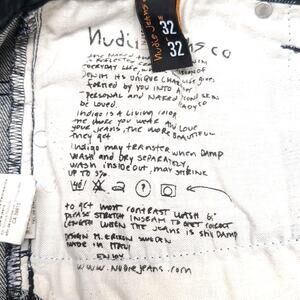 nudie jeans co
32
32
nudie jeans co
ANY NAKED
A REFLECTION
EVERYDAY LIFE,
DENIM ITS UNIQUE CHARACTER GIVES
FORMED BY YOU INTO A
PERSONAL AND NAKED ICON
BE LOVED.
INDIGO IS A LIVING COLOR
THE MORE YOU WEAR AND LOVE
YOUR JEANS, THE MORE BEAUTIFUL
THEY GET
INDIGO MAY TRANSFER WHEN DAMP
WASH AND DRY SEPARATELY
WASH INSIDE OUT, MAY SHRINK
UP TO 3%
to get MOST CONTRAST WASH 60°
PLEASE STRETCH INSEAM TO GET CORRECT
LENGTH WHEN THE JEANS IS STILL DAMP
DESIGN M. ERIXON SWEDEN
MADE IN ITALY
ENJOY
WWW.NUDIEJEANS.COM